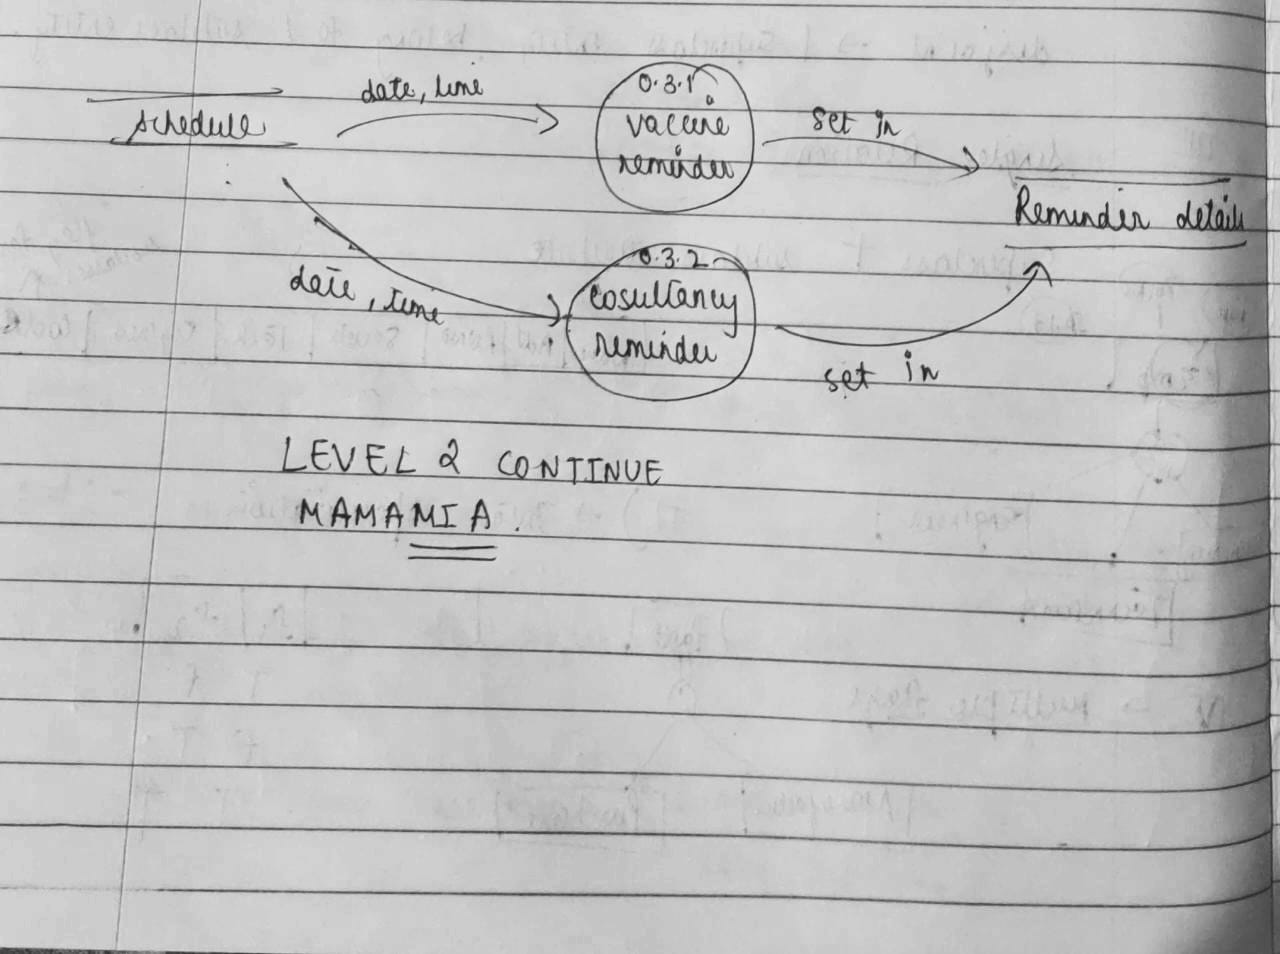 schedule
date, time
0.3.1
vaccine
reminder
set in
Reminder details
date, time
0.3.2
cosultancy
reminder
set in
LEVEL 2 CONTINUE
MAMAMIA.